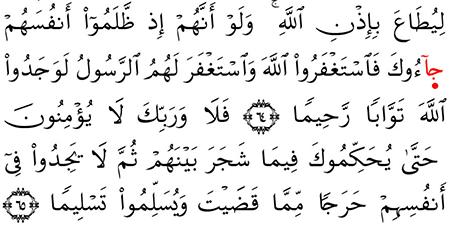 لِيُطَاعَ بِإِذْنِ ٱللَّهِ ۚ وَلَوْ أَنَّهُمْ إِذ ظَّلَمُوٓا۟ أَنفُسَهُمْ
جَآءُوكَ فَٱسْتَغْفَرُوا۟ ٱللَّهَ وَٱسْتَغْفَرَ لَهُمُ ٱلرَّسُولُ لَوَجَدُوا۟
ٱللَّهَ تَوَّابًا رَّحِيمًا ﴿٦٤﴾ فَلَا وَرَبِّكَ لَا يُؤْمِنُونَ
حَتَّىٰ يُحَكِّمُوكَ فِيمَا شَجَرَ بَيْنَهُمْ ثُمَّ لَا يَجِدُوا۟ فِىٓ
أَنفُسِهِمْ حَرَجًا مِّمَّا قَضَيْتَ وَيُسَلِّمُوا۟ تَسْلِيمًا ﴿٦٥﴾